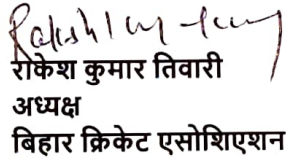 राकेश कुमार तिवारी
अध्यक्ष
बिहार क्रिकेट एसोशिएशन